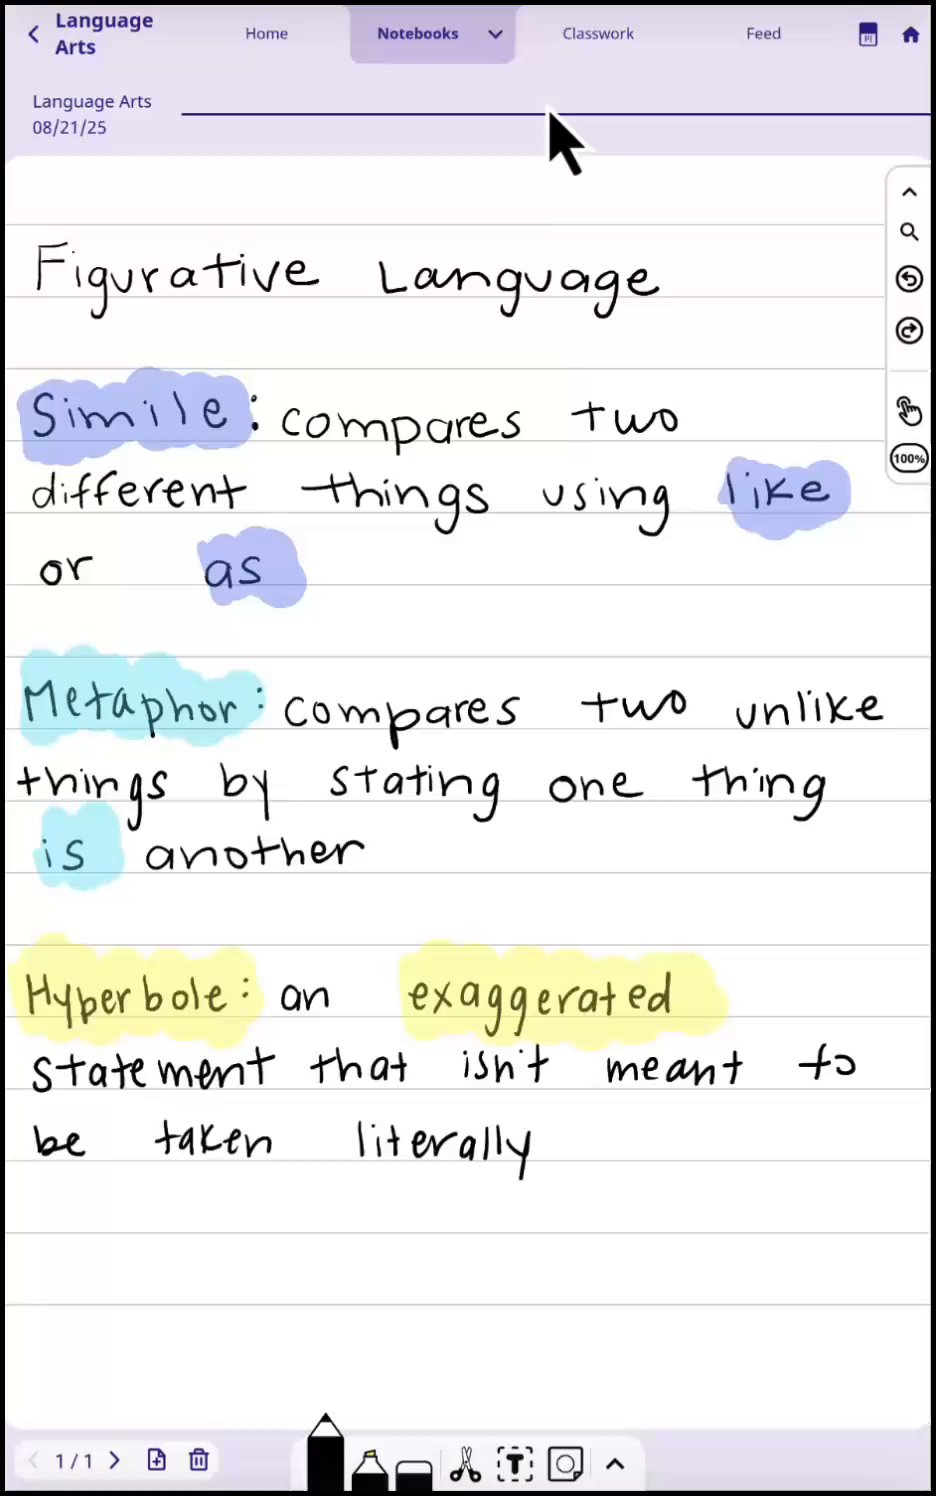 Language
Arts
Home
Notebooks
Classwork
Feed
Language Arts
08/21/25
Figurative Language
Simile: compares two
different things using like
or as
100%
Metaphor: compares two unlike
things by stating one thing
is another
Hyperbole: an exaggerated
statement that isn't meant to
be taken literally
1/1
T